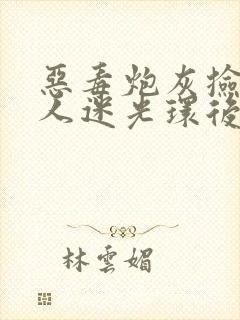 惡毒炮灰撿
人迷光環後
林雲媚